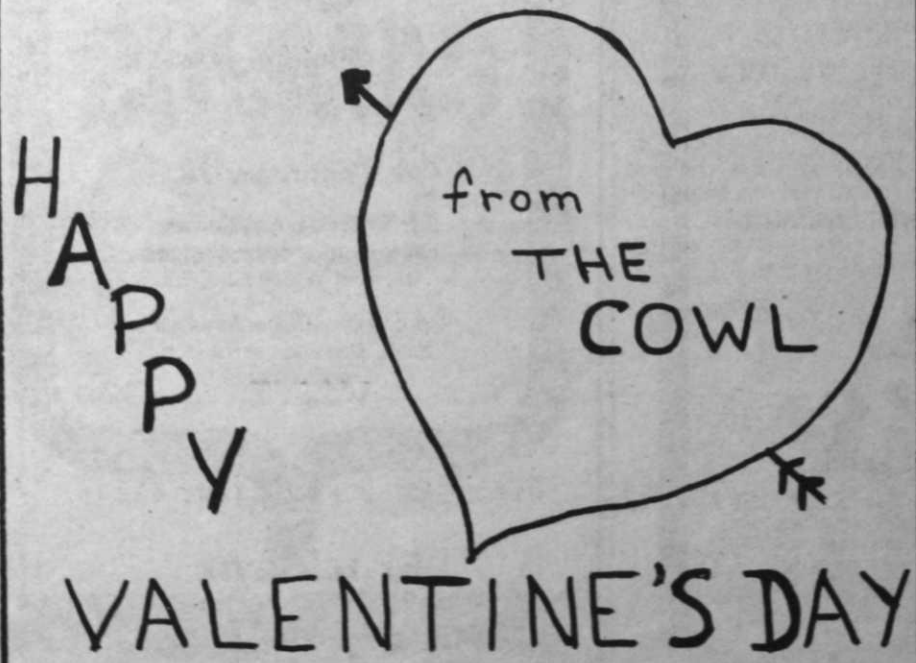 HAPPY
from
THE
COWL
VALENTINE'S DAY